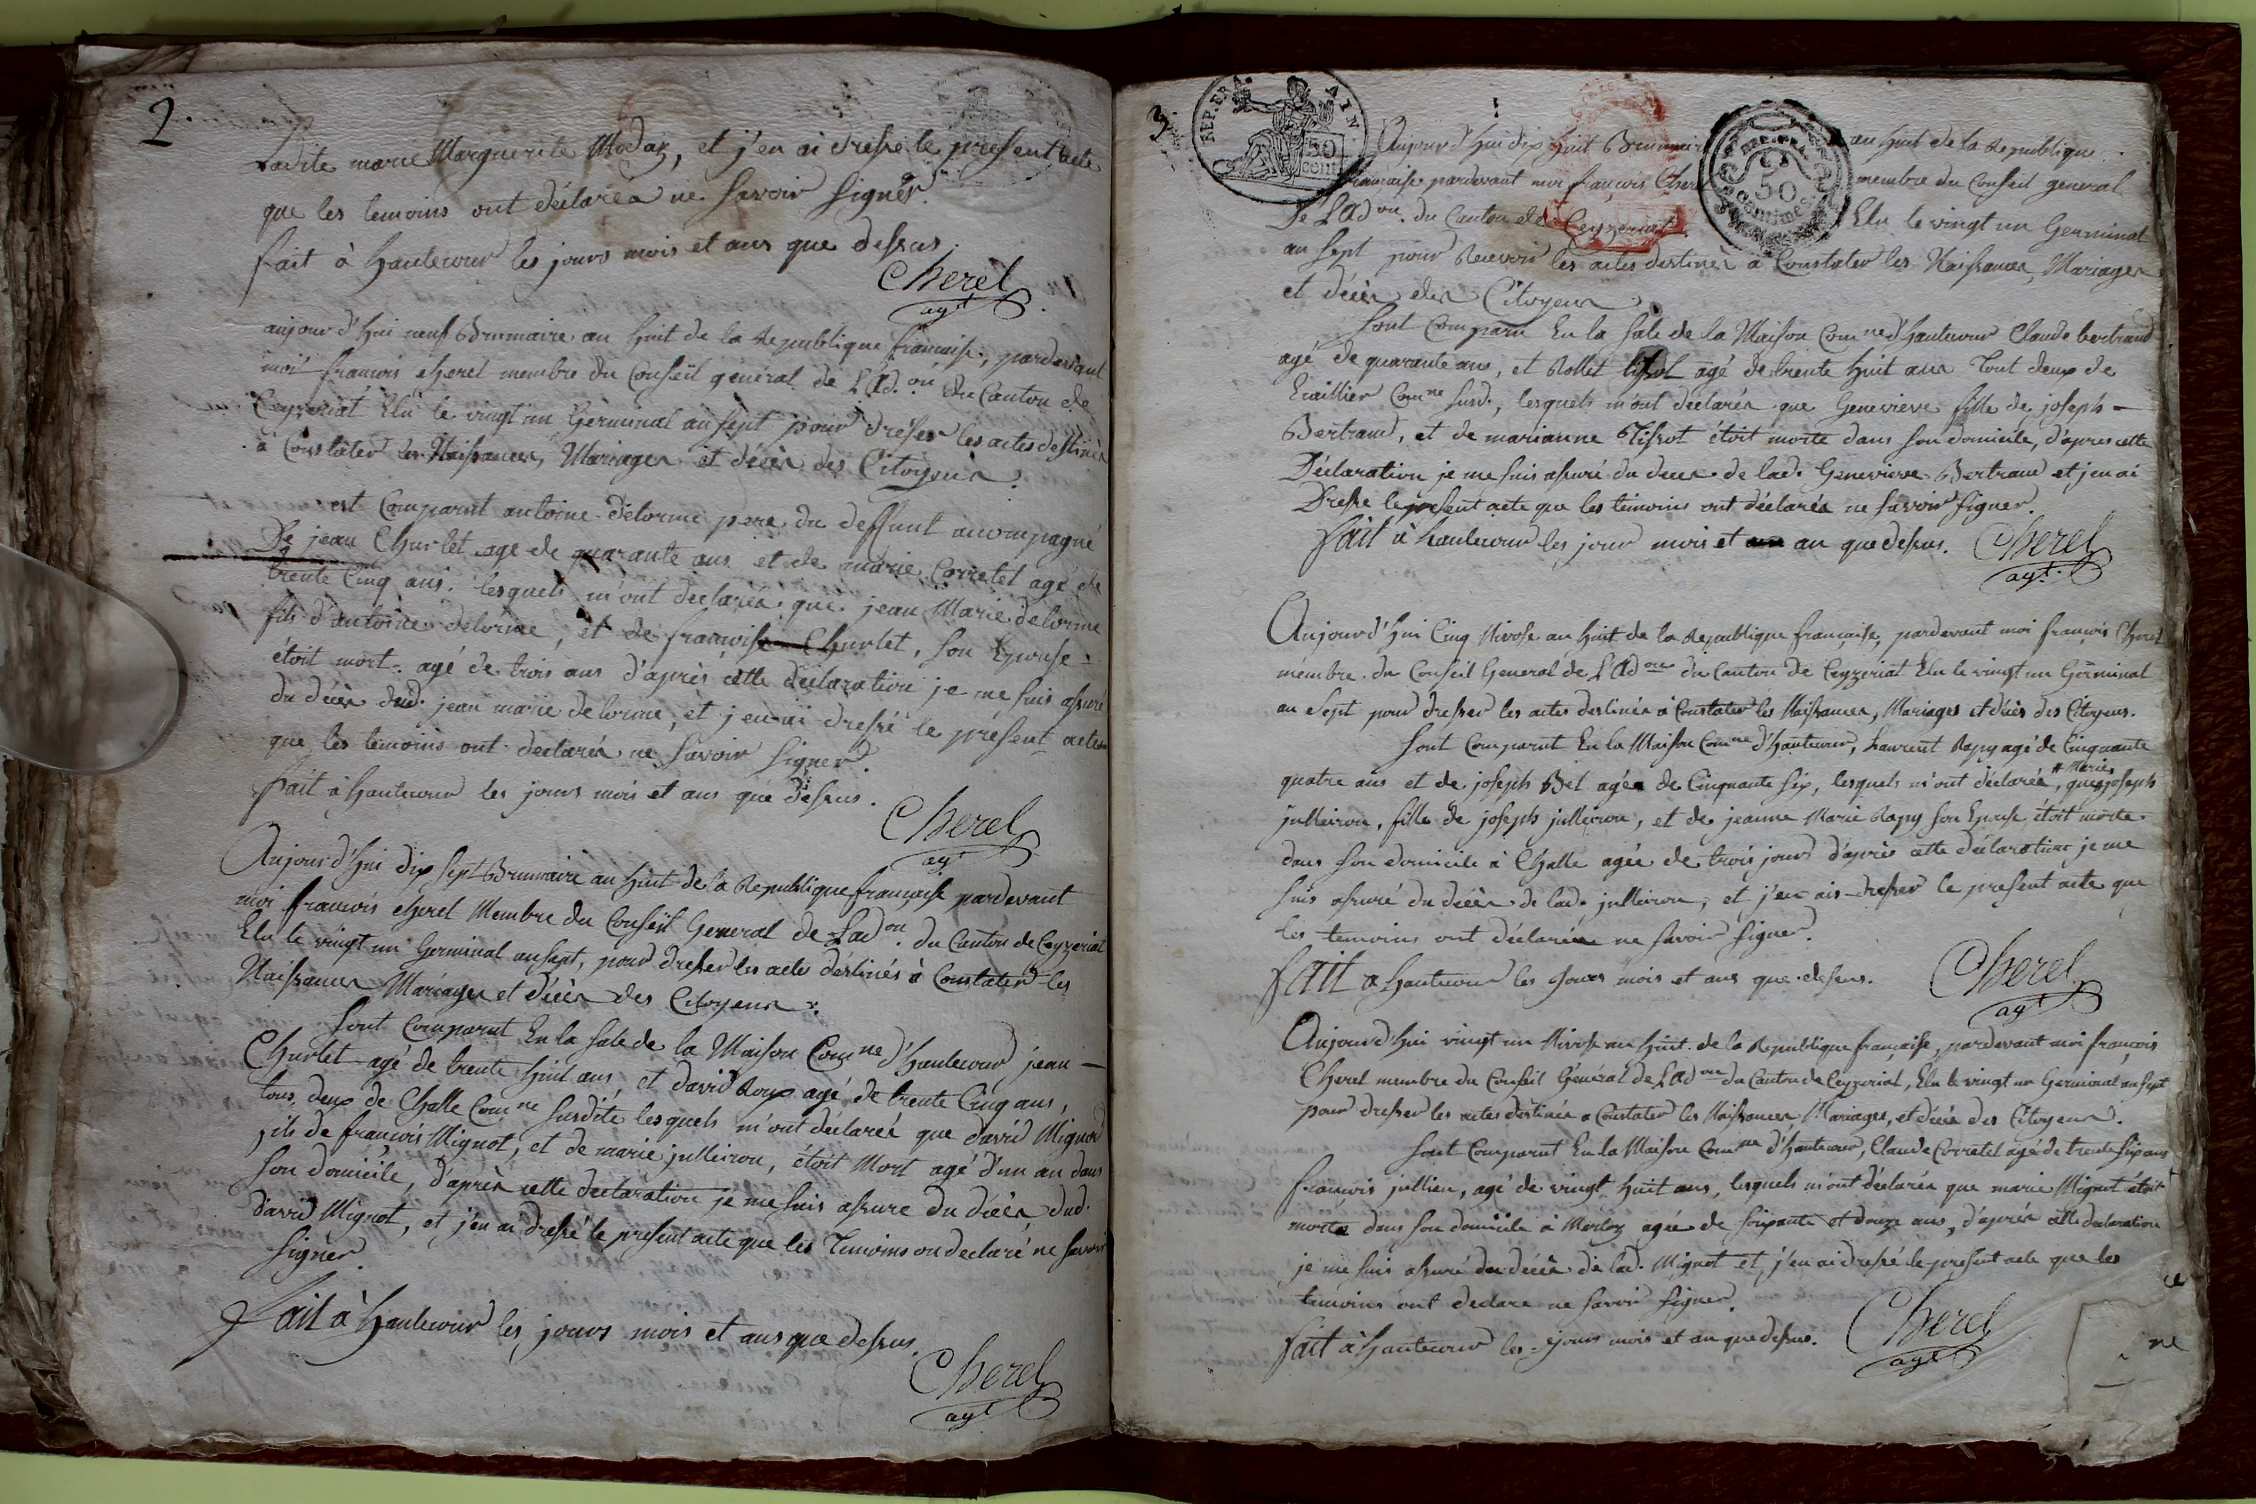 2.
ladite marie Marguerite Modaz, et j'en ai dressé le present acte
que les temoins ont déclarés ne savoir signer.
fait à hautecour les jours mois et ans que dessus.
Cherel
agt
aujourd'hui neuf Brumaire an huit de la Republique francaise, pardevant
moi francois Cherel membre du Conseil général de L'Ad.on du Canton de
Ceyzeriat Elu le vingt un Germinal an sept pour dresser les actes destinés
à Constater les Naissances, Mariages et décès des Citoyens.
est Comparut antoine delorme pere du deffunt accompagné
De jean Churlet agé de quarante ans et de marie Corretel agé de
trente Cinq ans. lesquels m'ont declarés que jean Marie delorme
fils d'antoine delorme, et de francoise Churlet, son Epouse
étoit mort agé de trois ans d'après cette déclaration je me suis assuré
du décès dud. jean marie delorme, et j'en ai dressé le présent acte
que les temoins ont declarés ne savoir signer.
fait à hautecour les jours mois et ans que dessus.
Cherel
agt
Aujourd'hui dix sept Brumaire an huit de la Republique française pardevant
moi francois Cherel Membre du Conseil General de Lad.on du Canton de Ceyzeriat
Elu le vingt un Germinal an sept, pour dresser les actes déstinés à Constater les
Naissances Mariages et décès des Citoyens.
Sont Comparut En la sale de la Maison Comne d'hautecour jean
Churlet agé de trente huit ans, et david Roux agé de trente Cinq ans,
tous deux de Challe Comne susdite lesquels m'ont déclarés que david Mignot
fils de françois Mignot, et de marie jullieron, étoit Mort agé d'un an dans
son domicile, d'après cette declaration je me suis assure du décès dud.
david Mignot, et j'en ai dressé le present acte que les Temoins on declaré ne savoir
signer.
Fait à hautecour les jours mois et ans que dessus.
Cherel
agt
3.
REP. FRA. AIN
50 cent
50 centimes
Aujourd'hui dix huit Brumaire an huit de la Republique
francaise pardevant moi françois Cherel membre du Conseil general
de L'Ad on. du Canton de Ceyzeriat Elu le vingt un Germinal
an sept pour Recevoir les actes destinés à Constater les Naissances, Mariages
et décès des Citoyens.
Sont Comparu En la sale de la Maison Comne d'hautecour Claude bertrand
agé de quarante ans, et Rollet tissot agé de trente huit ans Tout deux de
Comne susd., lesquels m'ont déclarés que Genevieve fille de joseph
Bertrand, et de marianne Tissot étoit morte dans son domicile, d'apres cette
Déclaration je me suis assuré du deces de lad. Genevieve Bertrand et j'en ai
Dresse le present acte que les témoins ont déclarés ne savoir signer.
fait à hautecour les jour mois et an que dessus.
Cherel
agt.
Aujourd'hui Cinq Nivose an huit de la Republique française, pardevant moi françois Cherel
mémbre du Conseil General de L'Ad on du Canton de Ceyzeriat Elu le vingt un Gérminal
an Sept pour dresser les actes destinés à Constater les Naissances, Mariages et décès des Citoyens.
Sont Comparut En la Maison Comne d'hautecour, Laurent Rapy agé de Cinquante
quatre ans et de joseph Bel agés de Cinquante six, lesquels m'ont déclarés, que # Marie joseph
jullieron, fille de joseph jullieron, et de jeanne Marie Rapy son Epouse étoit morte
dans son domicile à Challe agée de trois jours d'après cette déclaration je me
suis assuré du décès de lad. jullieron, et j'en ais dresser le present acte que
les temoins ont déclarés ne savoir signer.
fait à hautecour les jours mois et ans que dessus.
Cherel
agt
Aujourd'hui vingt un Nivose an huit de la Republique française, pardevant moi françois
Cherel membre du Conseil Général de L'Ad on du Canton de Ceyzeriat, Elu le vingt un Germinal an sept
pour dresser les actes destinés à Constater les Naissances Mariages, et décès des Citoyens.
Sont Comparut En la Maison Comne d'hautecour, Claude Corretel agé de trente six ans
françois jullien, agé de vingt huit ans, lesquels m'ont déclarés que marie Mignot étoit
morte dans son domicile à Merloz agée de soixante et douze ans, d'après cette declaration
je me suis assuré du décès de lad. Mignot et j'en ai dressé le present acte que les
temoins ont declare ne savoir signer.
fait à hautecour les jours mois et an que dessus.
Cherel
agt